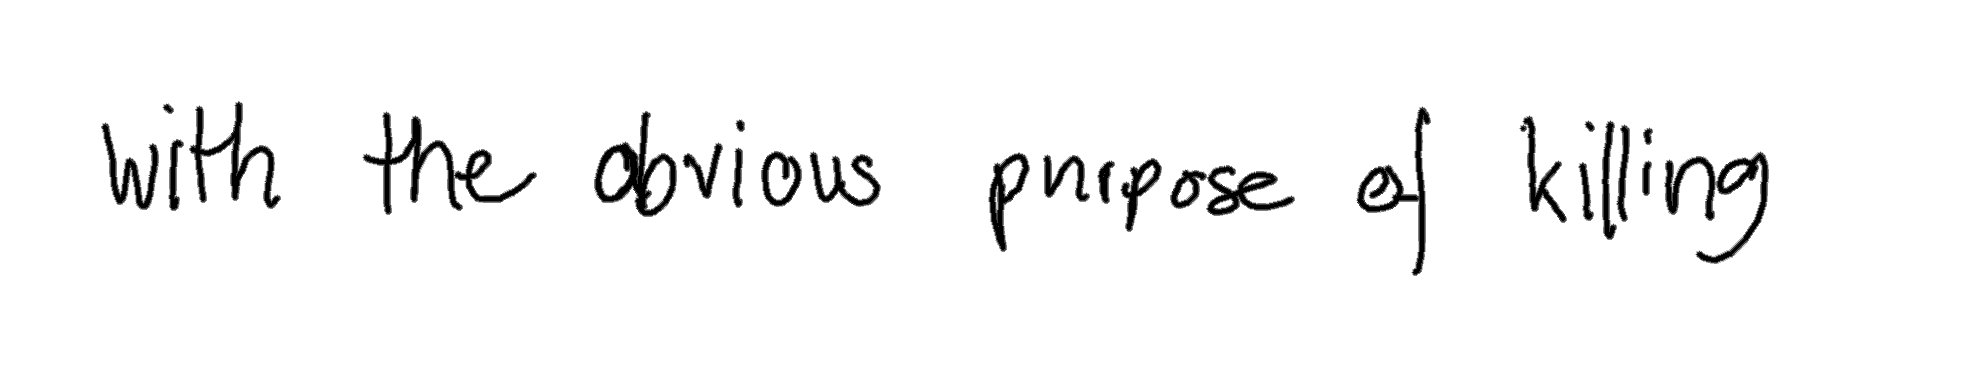 with the obvious purpose of killing